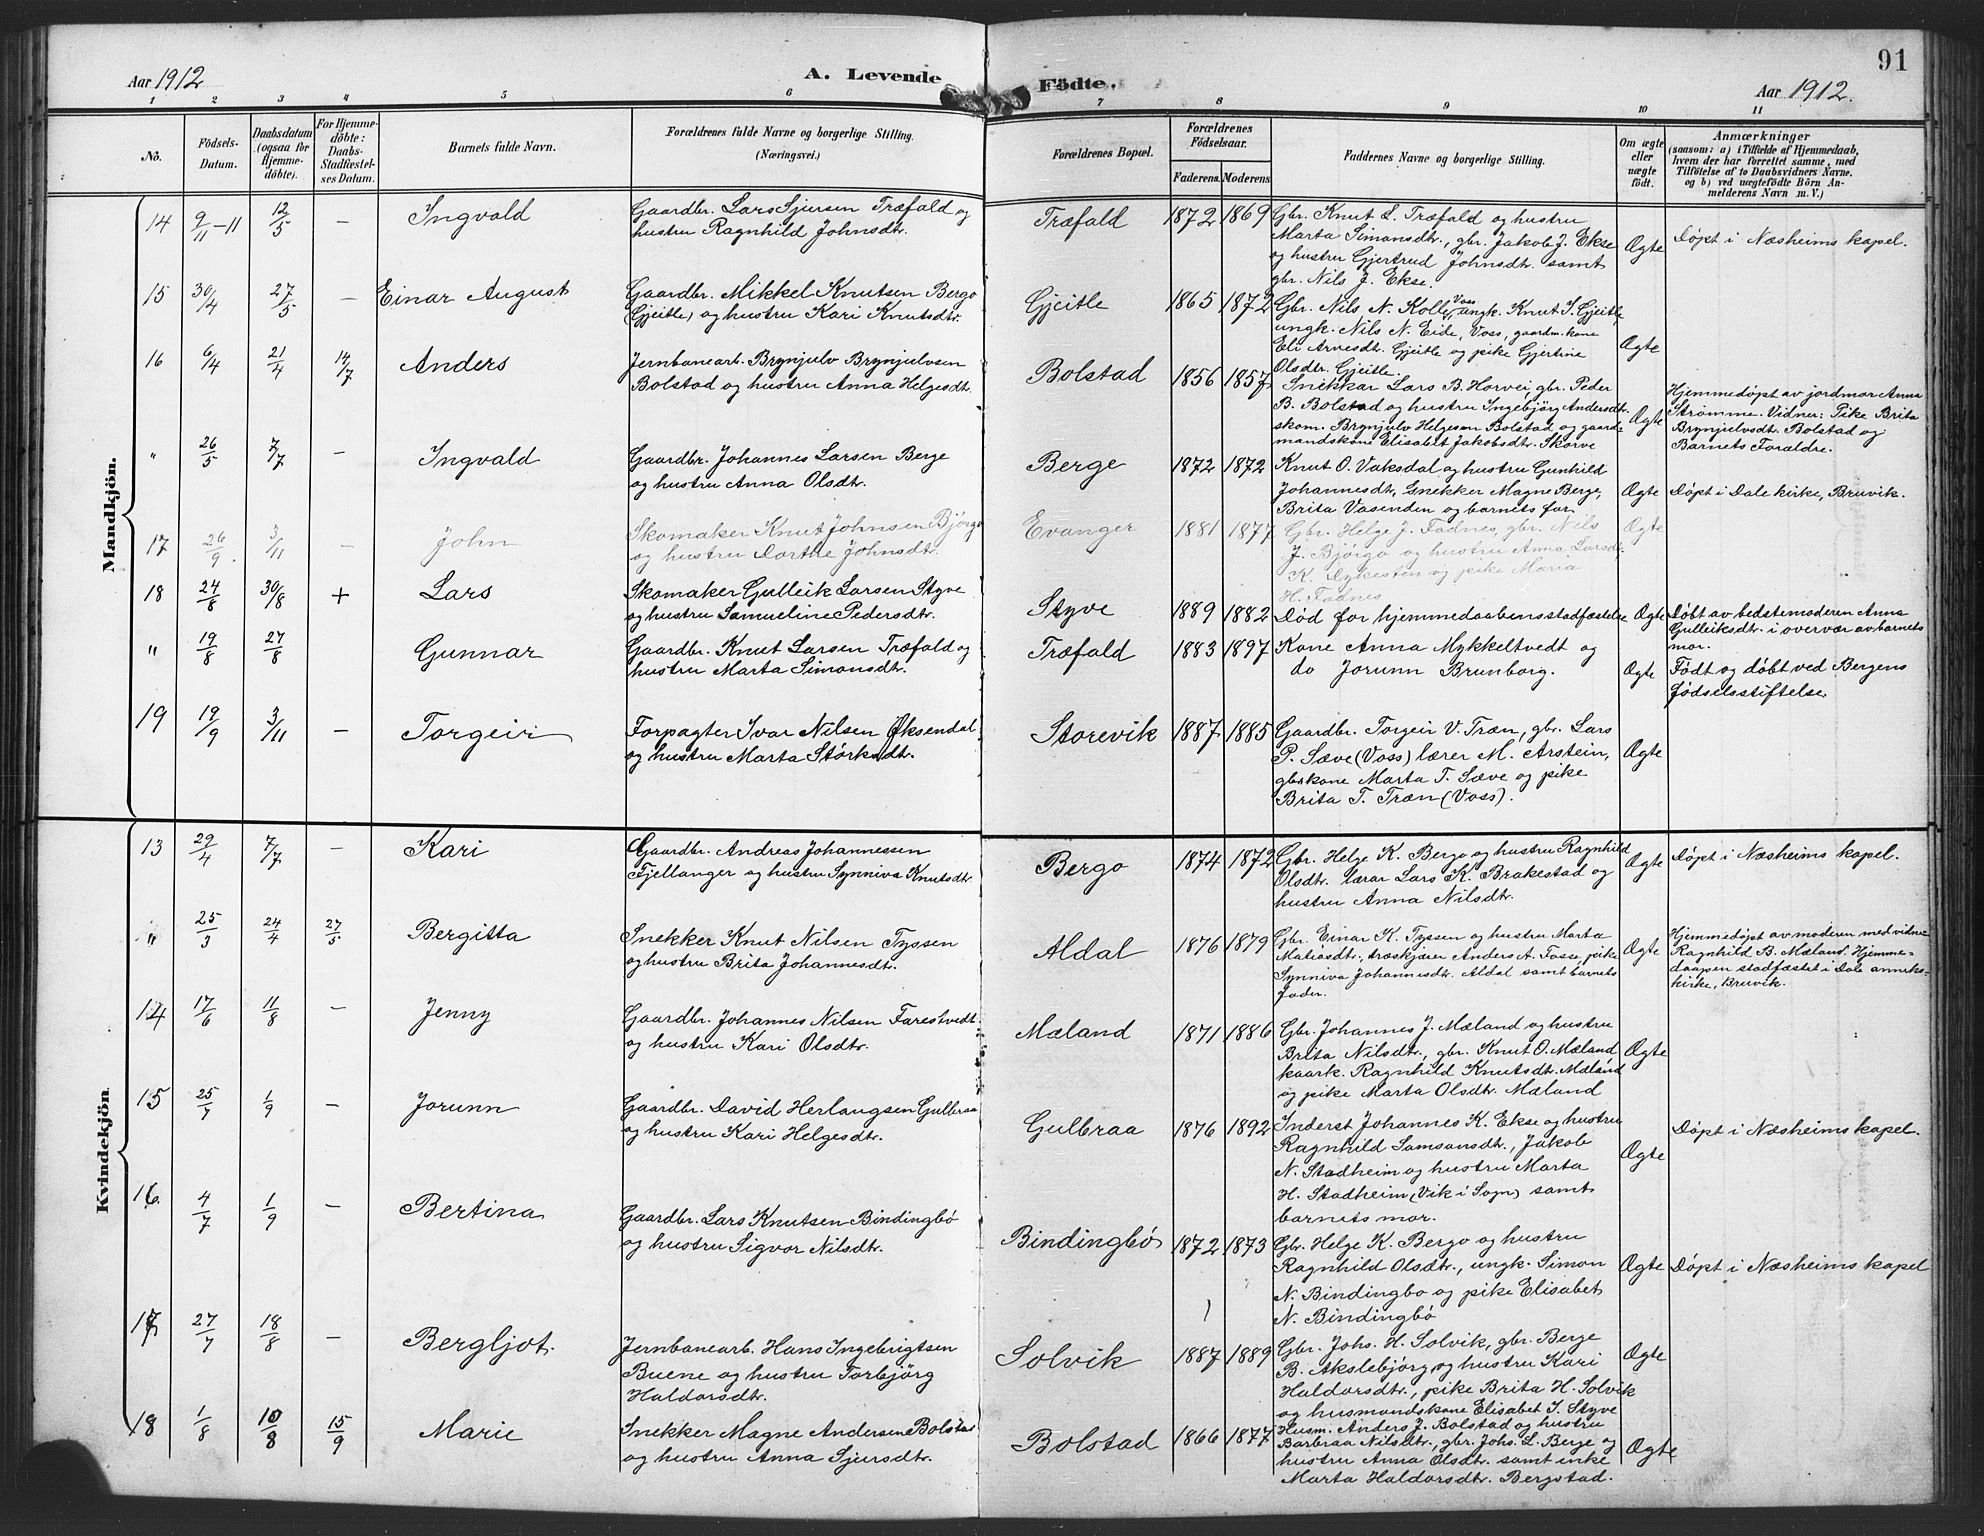 91
Aar 1912
A. Levende
Födte.
Aar 1912.
1 2 3 4 5 6 7 8 9 10 11
No.
Födsels-
Datum.
Daabsdatum
(ogsaa for
Hjemme-
döbte).
For Hjemme-
döbte:
Daabs-
Stadfæstel-
ses Datum.
Barnets fulde Navn.
Forældrenes fulde Navne og borgerlige Stilling.
(Næringsvei.)
Forældrenes Bopæl.
Forældrenes
Födselsaar.
Faderens. Moderens
Faddernes Navne og borgerlige Stilling.
Om ægte
eller
uægte
födt.
Anmærkninger
(saasom: a) i Tilfælde af Hjemmedaab,
hvem der har forrettet samme, med
Tilföielse af to Daabsvidners Navne.
og b) ved uægtefödte Börn An-
melderens Navn m. V.)
Mandkjön.
14 9/11-11 12/5 — Ingvald
Gaardbr. Lars Sjursen Træfald og
hustru Ragnhild Johnsdtr.
Træfald 1872 1869
Gbr. Knut L. Træfald og hustru
Marta Simonsdtr., gbr. Jakob J. Ekse
og hustru Gjertrud Johnsdtr. samt
gbr. Nils J. Ekse.
Ægte
Döpt i Næsheims kapel.
15 30/4 27/5 — Einar August
Gaardbr. Mikkel Knutsen Bergo
(Gjeitle) og hustru Kari Knutsdtr.
Gjeitle 1865 1872
Gbr. Nils N. Kolle, Voss, ungk. Knut I. Gjeitle,
ungk. Nils N. Eide, Voss, gaardm. kone
Eli Arnesdt. Gjeitle og pike Gjertine
Olsdtr. Gjeitle.
Ægte
16 6/4 21/4 14/7 Anders
Jernbanearb. Brynjulv Brynjulvsen
Bolstad og hustru Anna Helgesdtr.
Bolstad 1856 1857
Snekkar Lars B. Horvei, gbr. Peder
B. Bolstad og hustru Ingebjörg Andersdtr.
skom. Brynjulv Helgesen Bolstad og gaard-
mandskone Elisabet Jakobsdtr. Skorve
Ægte
Hjemmedöpt av jordmor Anna
Strömme. Vidner: Pike Brita
Brynjulvsdt. Bolstad og
Barnets Forældre.
" 26/5 7/7 — Ingvald
Gaardbr. Johannes Larsen Berge
og hustru Anna Olsdtr.
Berge 1872 1872
Knut O. Vaksdal og hustru Gunhild
Johannesdt, Snekker Magne Berge,
Brita Vasenden og barnets far
Ægte
Döpt i Dale kirke, Bruvik.
17 26/9 3/11 — John
Skomaker Knut Johnsen Bjørgo
og hustru Dorthe Johnsdt.
Evanger 1881 1877
Gbr. Helge J. Fadnes, gbr. Nils
J. Bjørgo og hustru Anna Larsdt.
K. Dykesten og pike Maria
H. Fadnes
Ægte
18 24/8 30/8 + Lars
Skomaker Gulleik Larsen Styve
og hustru Samueline Pedersdtr.
Styve 1889 1882
Död for hjemmedaabens stadfæstelse
Ægte
Döbt av bedstemoderen Anna
Gulleiksdtr. i overvær av barnets
mor.
" 19/8 27/8 Gunnar
Gaardbr. Knut Larsen Træfald og
hustru Marta Simonsdtr.
Træfald 1883 1897
Kone Anna Mykkeltvedt og
do Jorunn Brunborg.
Ægte
Födt og döbt ved Bergens
födselsstiftelse
19 19/9 3/11 — Torgeir
Forpagter Ivar Nilsen Öksendal
og hustru Marta Störksdtr.
Storevik 1887 1885
Gaardbr. Torgeir V. Træn, gbr. Lars
P. Sæve (Voss) lærer M. Arstein,
gbrkone Marta T. Sæve og pike
Brita T. Træn (Voss).
Ægte
Kvindekjön
13 29/4 7/7 — Kari
Gaardbr. Andreas Johannessen
Fjellanger og hustru Synniva Knutsdtr.
Bergo 1874 1872
Gbr. Helge K. Bergo og hustru Ragnhild
Olsdtr. lærar Lars K. Brakestad og
hustru Anna Nilsdtr.
Ægte
Döpt i Næsheims kapel.
" 25/3 24/4 27/5 Bergitta
Snekker Knut Nilsen Tyssen
og hustru Brita Johannesdtr.
Aldal 1876 1879
Gbr. Einar K. Tyssen og hustru Marta
Matiasdtr., træskjærer Anders A. Fosse, pike
Synniva Johannesdtr. Aldal samt barnets
fader.
Ægte
Hjemmedöpt av moderen med vidne
Ragnhild B. Mæland. Hjemme-
daapen stadfæstet i Dale anneks-
kirke, Bruvik.
14 17/6 11/8 — Jenny
Gaardbr. Johannes Nilsen Farestvedt
og hustru Kari Olsdtr.
Mæland 1871 1886
Gbr. Johannes J. Mæland og hustru
Brita Nilsdtr., gbr. Knut O. Mæland
kaark. Ragnhild Knutsdtr. Mæland
og pike Marta Olsdtr. Mæland
Ægte
15 25/7 1/9 — Jorunn
Gaardbr. David Herlaugsen Gulbraa
og hustru Kari Helgesdtr.
Gulbraa 1876 1892
Inderst Johannes K. Ekse og hustru
Ragnhild Samsonsdtr., Jakob
N. Stadheim og hustru Marta
H. Stadheim (Vik i Sogn) samt
barnets mor.
Ægte
Döpt i Næsheims kapel.
16 4/7 1/9 — Bertina
Gaardbr. Lars Knutsen Bindingbö
og hustru Sigvor Nilsdtr.
Bindingbö 1872 1873
Gbr. Helge K. Bergo og hustru
Ragnhild Olsdtr., ungk. Simon
N. Bindingbo og pike Elisabet
N. Bindingbö
Ægte
Döpt i Næsheims kapel
17 27/7 18/8 — Bergljot.
Jernbanearb. Hans Ingebrigtsen
Buene og hustru Torbjörg
Haldorsdtr.
Solvik 1887 1889
Gbr. Johs. H. Solvik, gbr. Berge
B. Akslebjörg og hustru Kari
Haldorsdtr., pike Brita H. Solvik
og husmandskone Elisabet I. Styve
Ægte
18 1/8 10/8 15/9 Marie
Snekker Magne Andersen Bolstad
og hustru Anna Sjursdtr.
Bolstad 1866 1877
Husm. Anders J. Bolstad og hustru
Barbraa Nilsdtr., gbr. Johs. L. Berge og
hustru Anna Olsdtr. samt enke
Marta Haldorsdtr. Bergstad.
Ægte